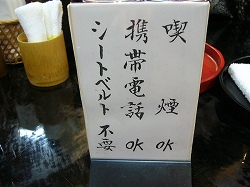 喫煙OK
携帯電話OK
シートベルト不要